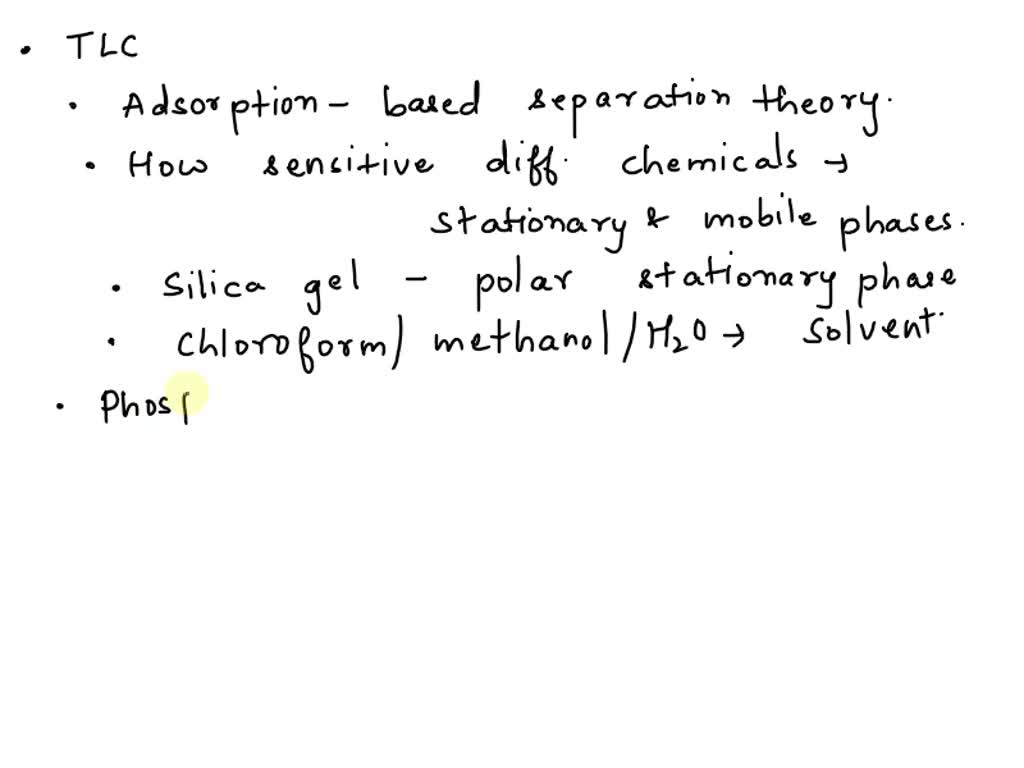 • TLC
• Adsorption - based separation theory.
• How sensitive diff. chemicals →
stationary & mobile phases.
• Silica gel - polar stationary phase
• Chloroform/ methanol/H₂O → solvent.
• Phos